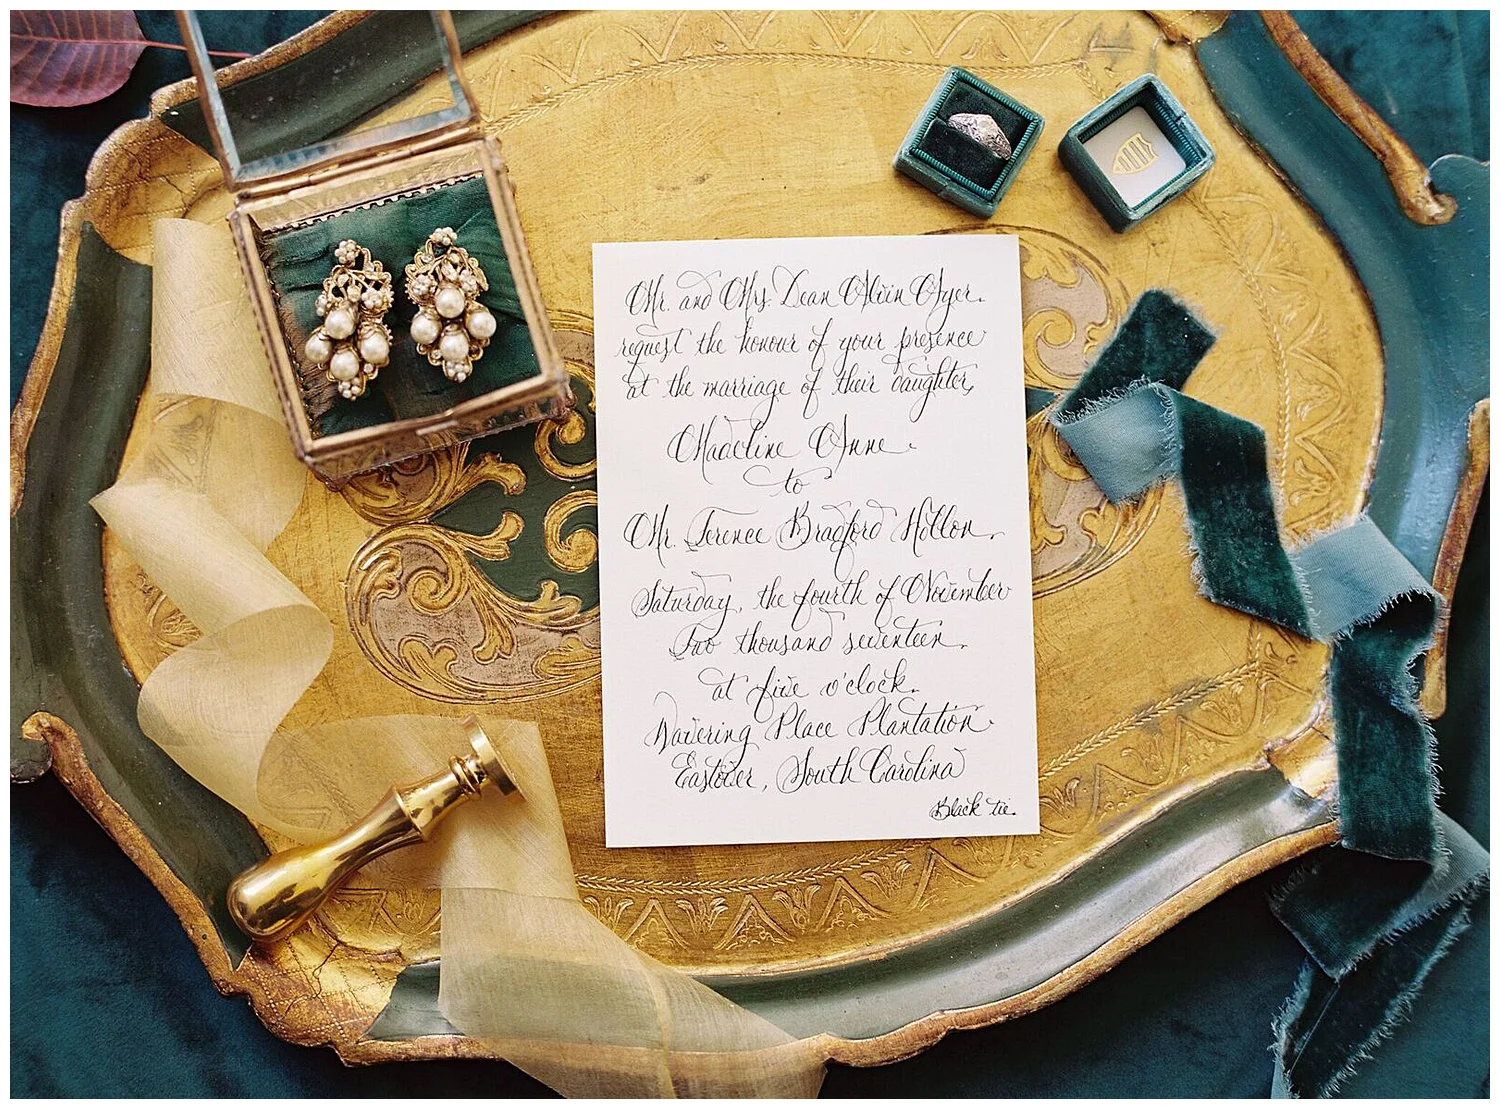 Mr. and Mrs. Dean Alvin Ayer.
request the honour of your presence
at the marriage of their daughter,
Madeline Anne.
to
Mr. Terence Bradford Hollon.
Saturday, the fourth of November
Two thousand seventeen.
at five o'clock.
Wavering Place Plantation.
Eastover, South Carolina
Black tie.